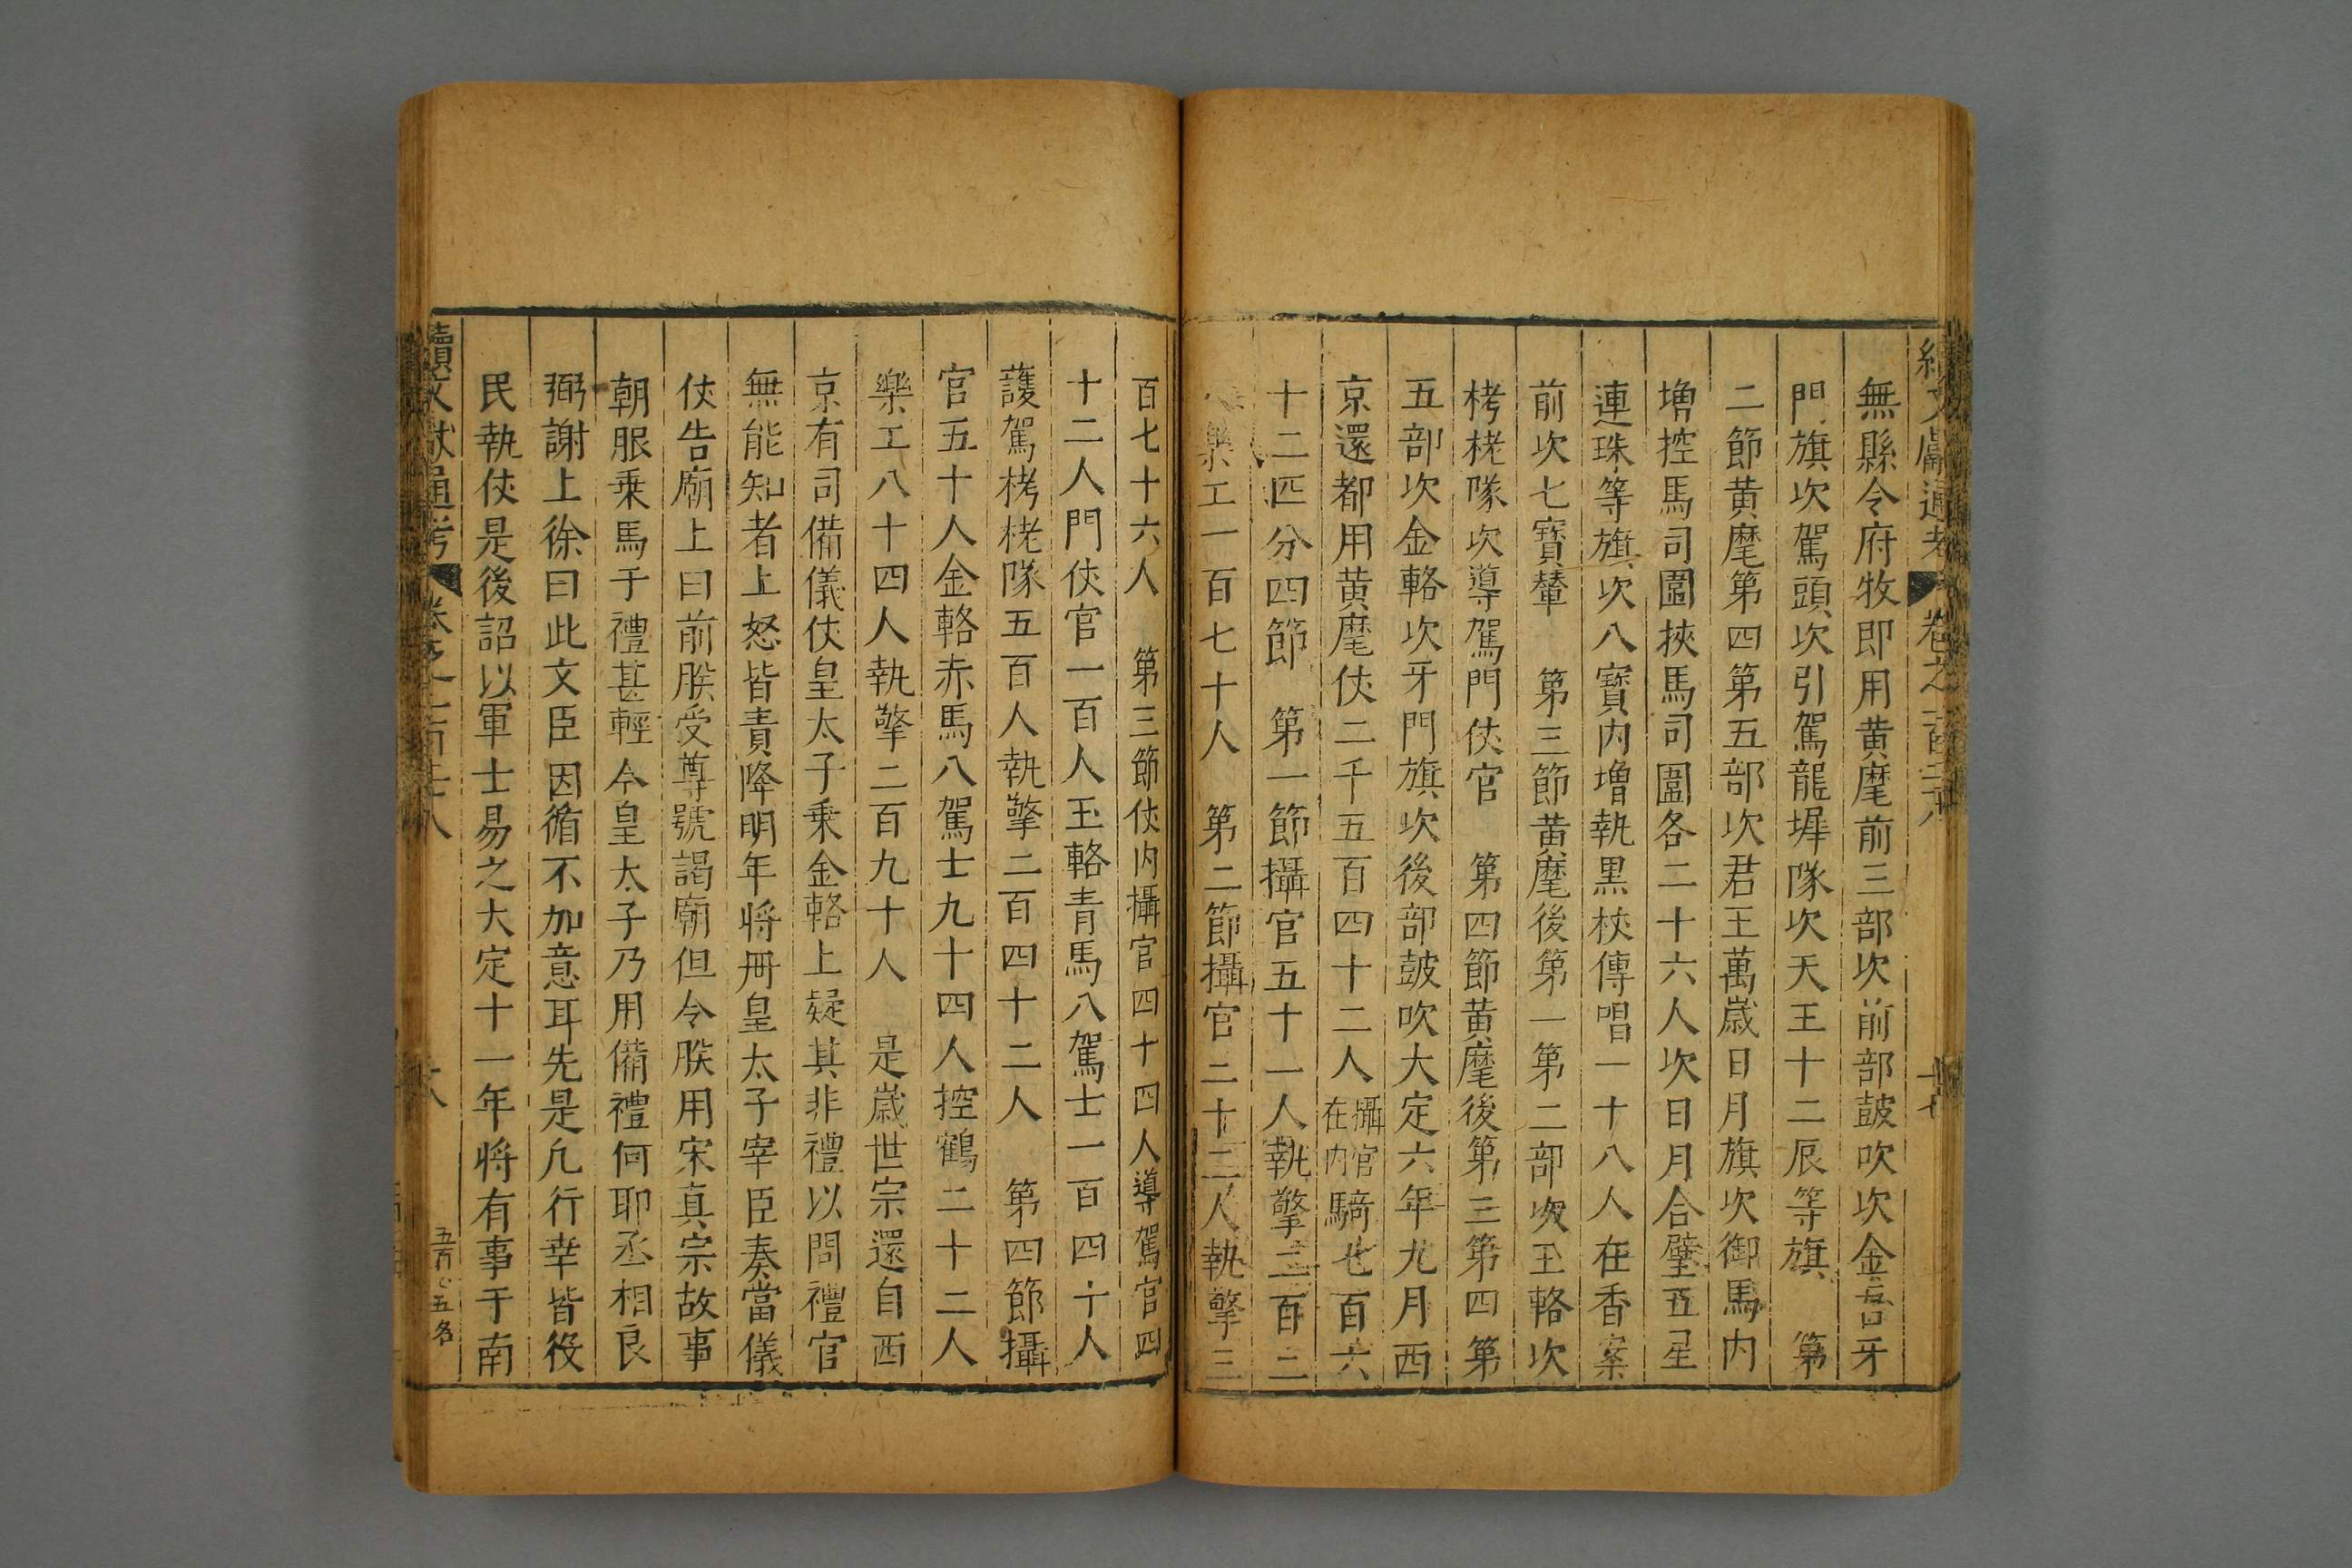 無縣令府牧即用黄麾前三部次前部鼓吹次金吾牙
門旗次駕頭次引駕龍墀隊次天王十二辰等旗　第
二節黄麾第四第五部次君王萬歲日月旗次御馬内
増控馬司圍挾馬司圍各二十六人次日月合璧五星
連珠等旗次八寶内増執黒杖傳唱一十八人在香案
前次七寶輦　第三節黄麾後第一第二部次玉輅次
栲栳隊次導駕門仗官　第四節黄麾後第三第四第
五部次金輅次牙門旗次後部鼓吹大定六年九月西
京還都用黄麾仗二千五百四十二人攝官在内騎七百六
十二匹分四節　第一節攝官五十一人執擎三百二
人樂工一百七十人　第二節攝官二十二人執擎三
百七十六人　第三節仗内攝官四十四人導駕官四
十二人門仗官一百人玉輅青馬八駕士一百四十人
護駕栲栳隊五百人執擎二百四十二人　第四節攝
官五十人金輅赤馬八駕士九十四人控鶴二十二人
樂工八十四人執擎二百九十人　是歲世宗還自西
京有司備儀仗皇太子乗金輅上疑其非禮以問禮官
無能知者上怒皆責降明年将冊皇太子宰臣奏當儀
仗告廟上曰前朕受尊號謁廟但令朕用宋真宗故事
朝服乗馬于禮甚輕今皇太子乃用備禮何耶丞相良
弼謝上徐曰此文臣因循不加意耳先是凢行幸皆役
民執仗是後詔以軍士易之大定十一年将有事于南
續文獻通考